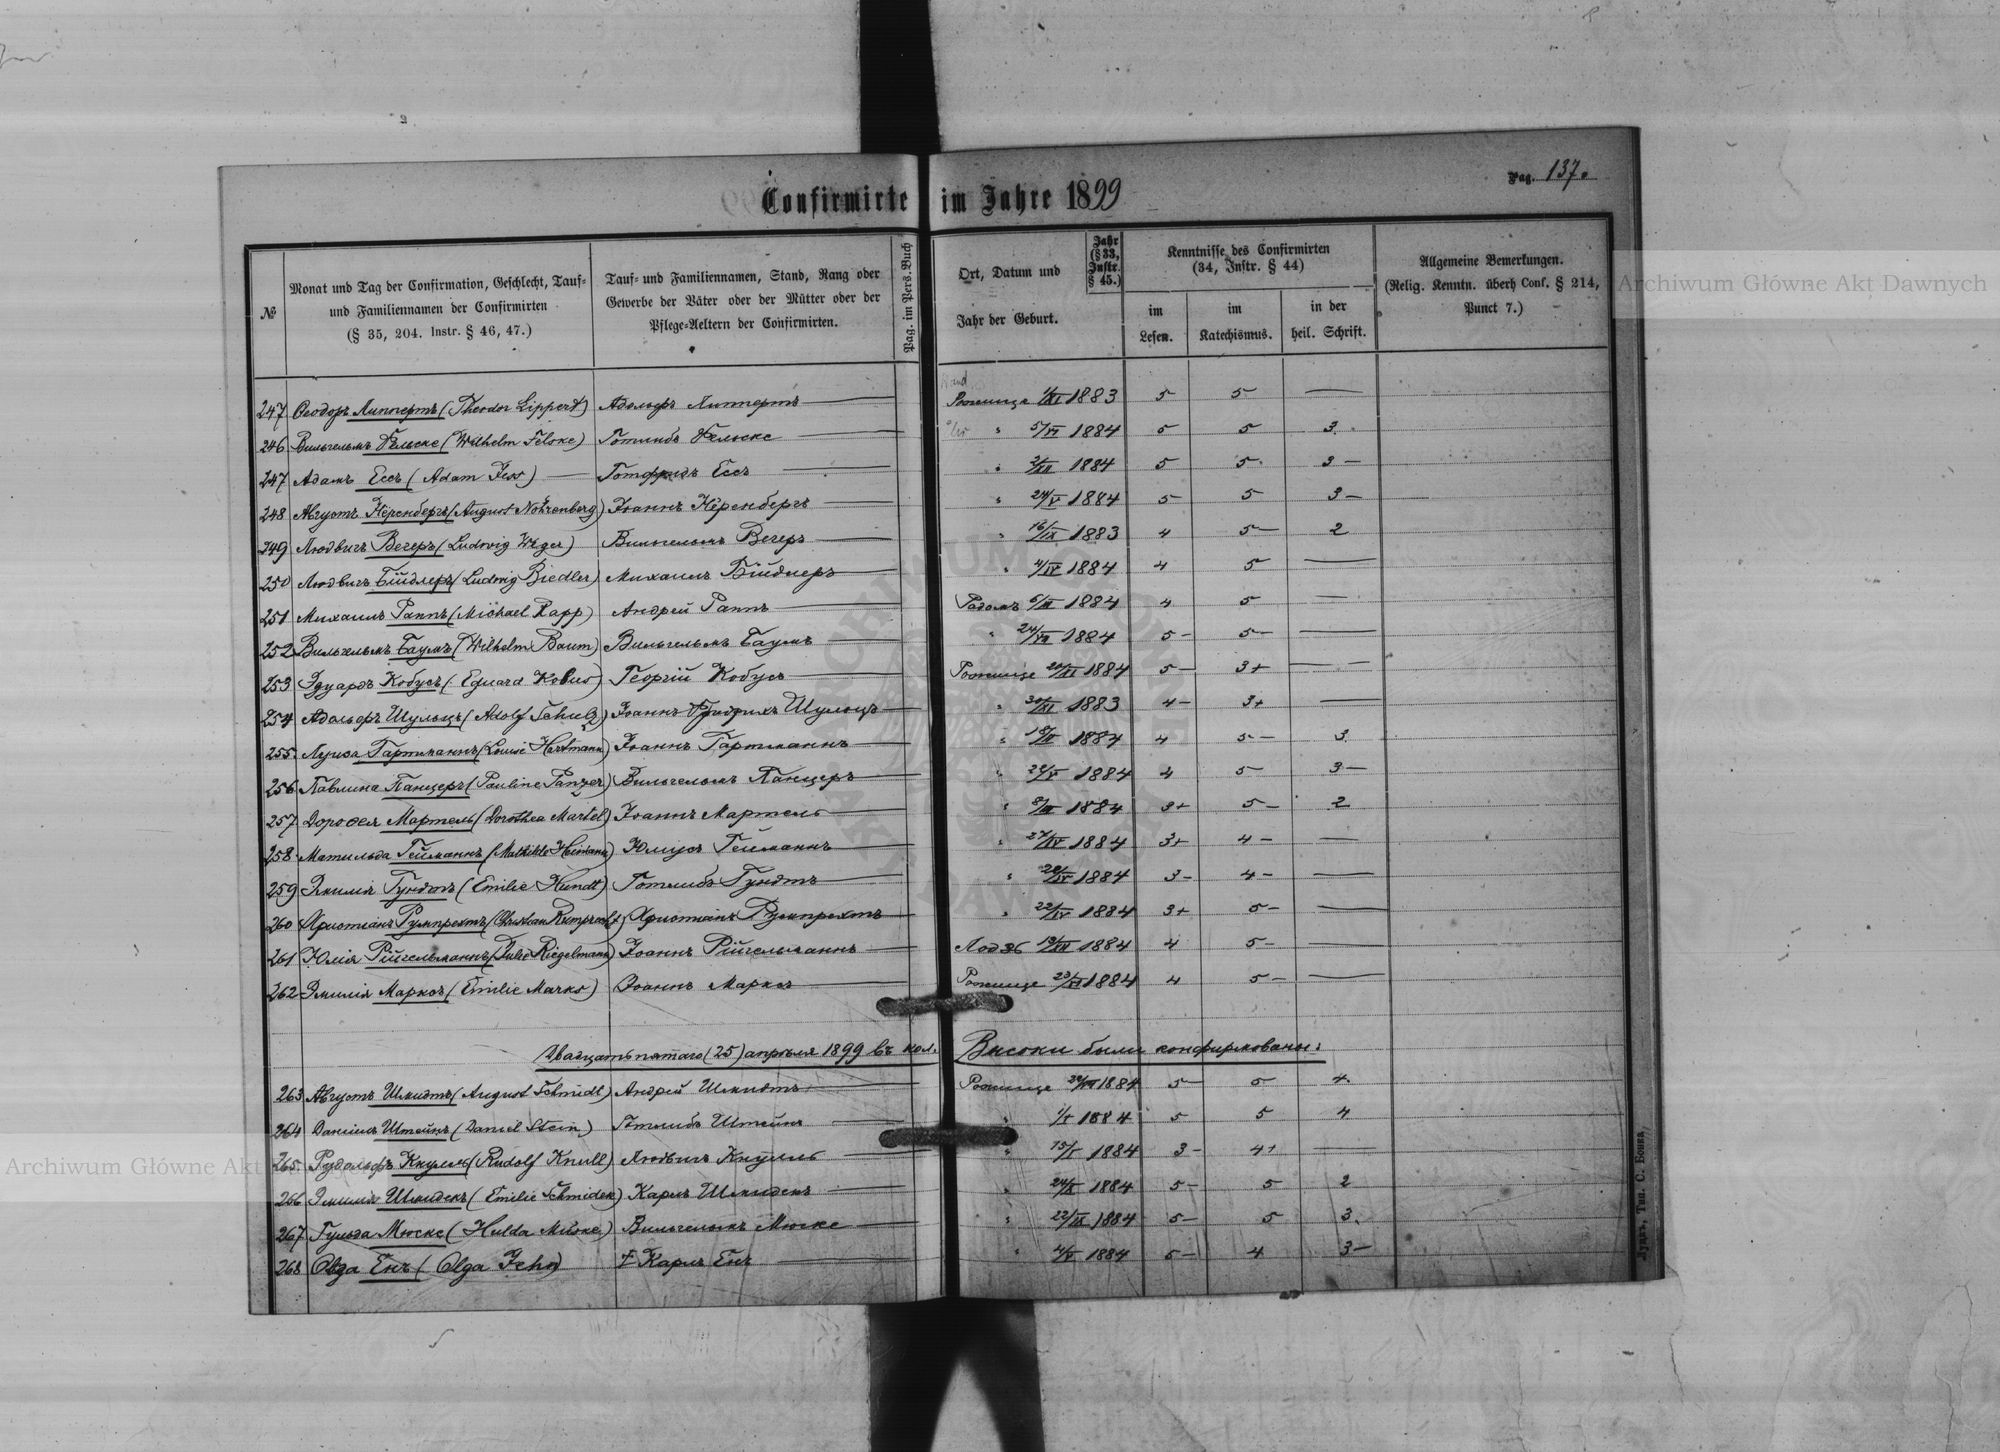 Confirmirte im Jahre 1899
Pag. 137.
№
Monat und Tag der Confirmation, Geschlecht, Tauf-
und Familiennamen der Confirmirten
(§ 35, 204. Instr. § 46, 47.)
Tauf- und Familiennamen, Stand, Rang oder
Gewerbe der Väter oder der Mütter oder der
Pflege-Aeltern der Confirmirten.
Pag. im Pers. Buch
Ort, Datum und
Jahr der Geburt.
Jahr
(§ 33,
Instr.
§ 45.)
Kenntnisse des Confirmirten
(34, Instr. § 44)
im
Lesen.
im
Katechismus.
in der
heil. Schrift.
Allgemeine Bemerkungen.
(Relig. Kenntn. überh Conf. § 214,
Punct 7.)
247 Ѳеодоръ Липпертъ (Theodor Lippert) Адольфъ Липпертъ — Рожище /XI 1883 5 5 —
246 Вильгельмъ Фельске (Wilhelm Felske) Готлибъ Фельске — " 5/VI 1884 5 5 3.
247 Адамъ Ессъ (Adam Jess) — Готфридъ Ессъ — " 2/XII 1884 5 5. 3 —
248 Августъ Нёренбергъ (August Nöhrenberg) Іоаннъ Нёренбергъ — " 24/V 1884 5 - 5 3 —
249 Людвигъ Вегеръ (Ludwig Weger) Вильгельмъ Вегеръ — " 16/IX 1883 4 5 — 2
250 Людвигъ Бидлеръ (Ludwig Biedler) Михаилъ Бидлеръ — " 4/IV 1884 4 5 —
251 Михаилъ Раппъ (Michael Rapp) Андрей Раппъ — Радомъ 6/III 1884 4 5 —
252 Вильгельмъ Баумъ (Wilhelm Baum) Вильгельмъ Баумъ — " 24/VII 1884 5 - 5 — —
253 Эдуардъ Кобусъ (Eduard Kobus) Георгій Кобусъ — Рожище 20/XI 1884 5 — 3+ —
254 Адольфъ Шульцъ (Adolf Schulz) Іоаннъ Фридрихъ Шульцъ — " 30/XI 1883 4 — 3+ —
255. Луиза Гартманнъ (Louise Hartmann) Іоаннъ Гартманнъ — " 18/II 1884 4 5 — 3.
256 Павлина Панцеръ (Pauline Panzer) Вильгельмъ Панцеръ — " 22/V 1884 4 5 — 3 —
257. Доровея Мартель (Dorothea Martel) Іоаннъ Мартель — " 8/III 1884 3+ 5 — 2
258. Матильда Гейманнъ (Mathilde Heimann) Юлиусъ Гейманнъ — " 27/IV 1884 3+ 4 — —
259 Эмилія Гундтъ (Emilie Hundt) Готлибъ Гундтъ — " 28/IV 1884 3 — 4 — —
260 Христіанъ Румпрехтъ (Christian Rumprecht) Христіанъ Румпрехтъ — " 22/IV 1884 3+ 5 — —
261 Юлія Ригельманнъ (Julie Riegelmann) Іоаннъ Ригельманнъ — Лодзь 19/XII 1884 4 5 — —
262 Эмилія Марксъ (Emilie Marks) Іоаннъ Марксъ — Рожище 23/VI 1884 4 5 — —
Двадцать пятаго (25) апрѣля 1899 въ кол. Высоки были конфирмованы:
263 Августъ Шмидтъ (August Schmidt) Андрей Шмидтъ — Рожище 1884 5 — 5 4.
264 Даніилъ Штейнъ (Daniel Stein) Готлибъ Штейнъ — " 1/I 1884 5 5 4
265. Рудольфъ Кнулль (Rudolf Knull) Людвигъ Кнулль — " 15/I 1884 3 — 4+ —
266 Эмилія Шмидекъ (Emilie Schmidek) Карлъ Шмидекъ — " 24/X 1884 5 — 5 2
267 Гульда Мюске (Hulda Müske) Вильгельмъ Мюске — " 22/IX 1884 5 — 5 3.
268 Olga Енъ (Olga Jehn) † Карлъ Енъ — " 4/V 1884 5 — 4 3 —
Луцкъ, Тип. С. Бонка
Archiwum Główne Akt Dawnych
Archiwum Główne Akt